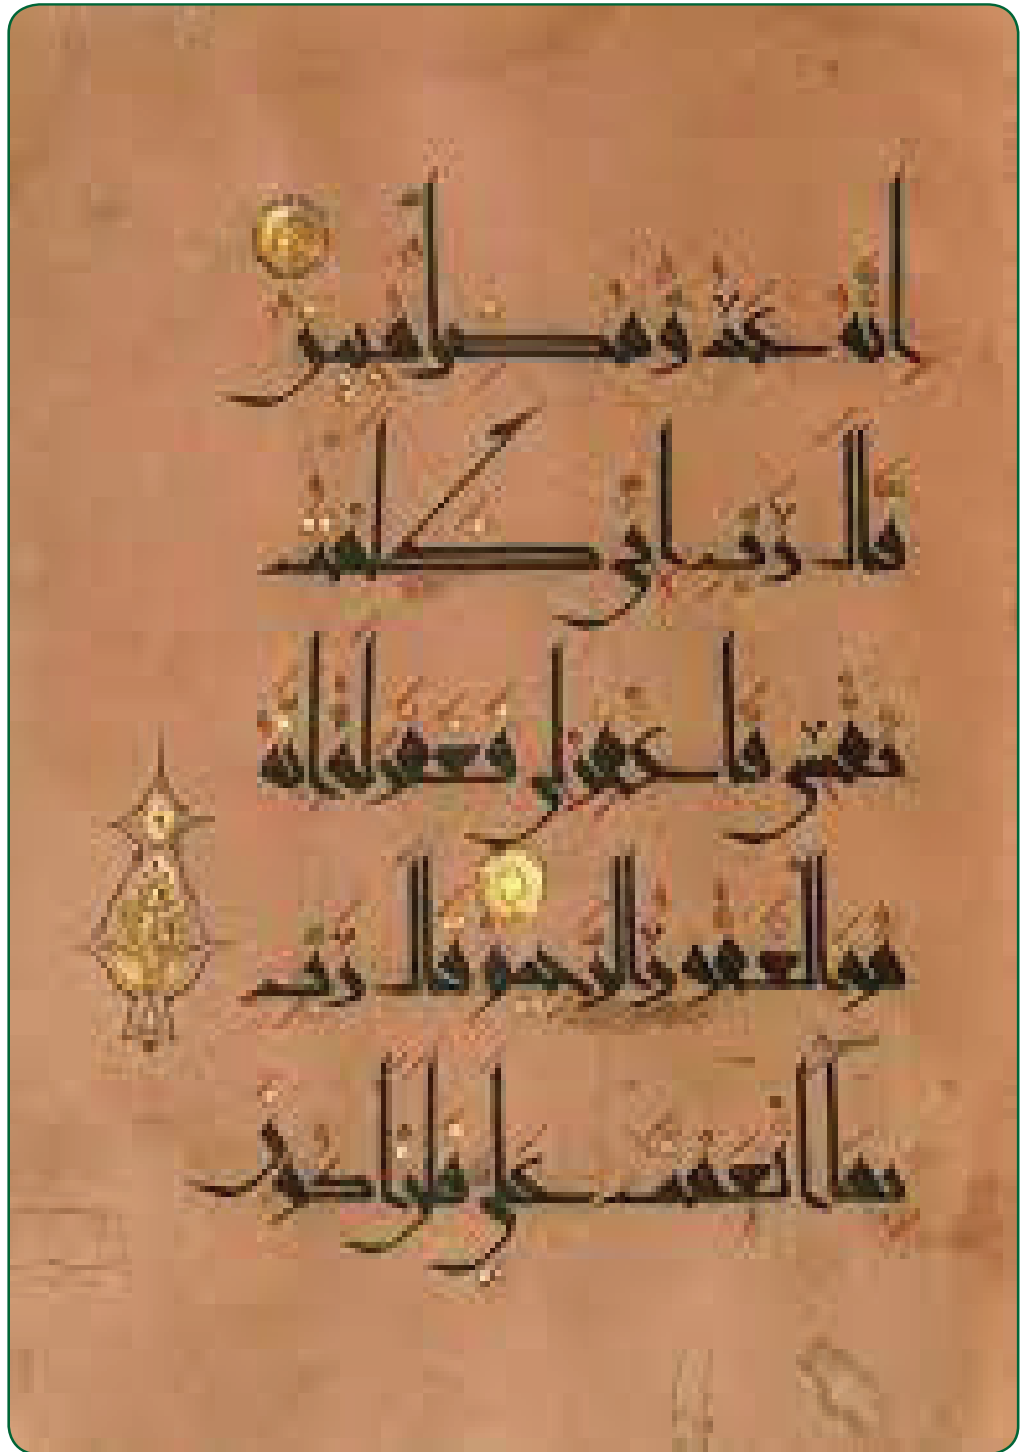 إِنَّهُ عَدُوٌّ مُضِلٌّ مُبِينٌ
قَالَ رَبِّ إِنِّي ظَلَمْتُ
نَفْسِي فَاغْفِرْ لِي فَغَفَرَ لَهُ إِنَّهُ
هُوَ الْغَفُورُ الرَّحِيمُ قَالَ رَبِّ
بِمَا أَنْعَمْتَ عَلَيَّ فَلَنْ أَكُونَ